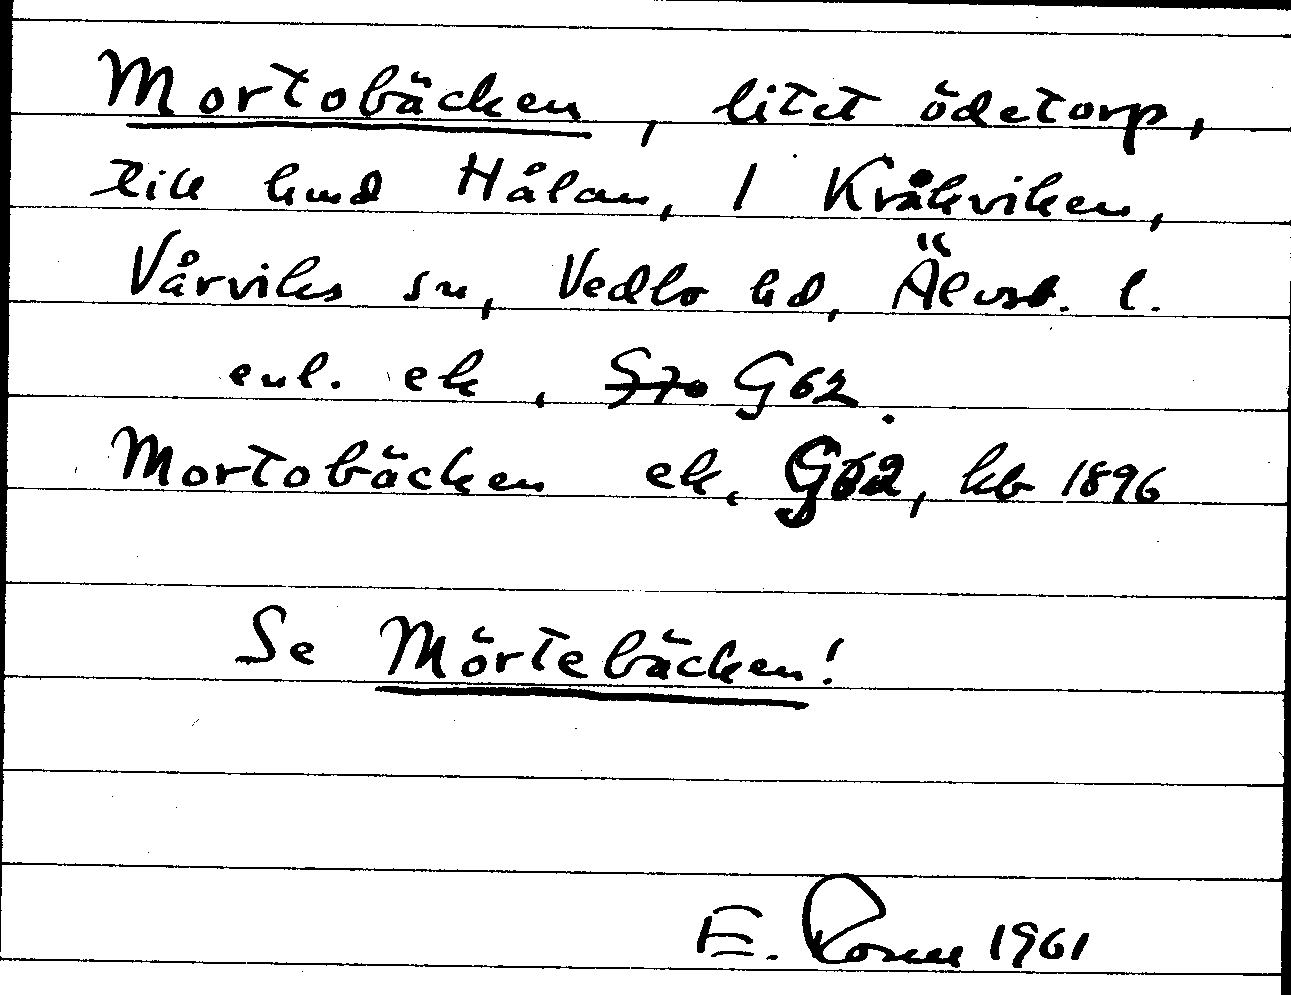 Mortobäcken, litet ödetorp,
till hmd Hålan, 1 Kråkviken,
Vårviks sn, Vedbo hd, Älvsb. l.
enl. ek, G62.
Mortobäcken ek, G62, kb 1896
Se Mörtebäcken!
E. 1961